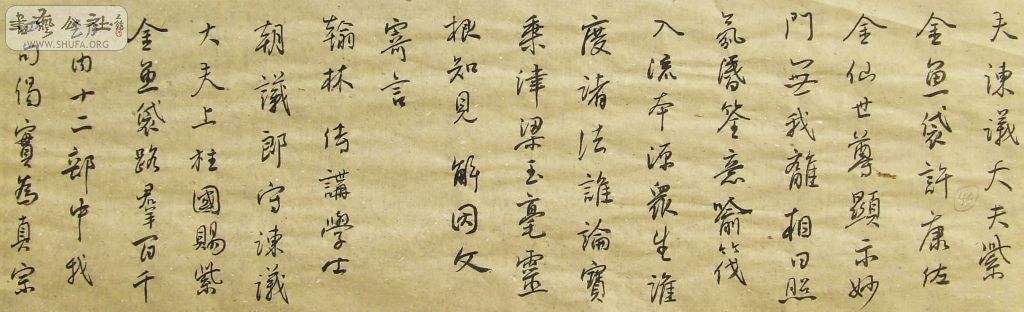 夫諫議大夫紫
金魚袋許康佐
金仙世尊顯示妙
門無我離相日照
氛昏筌意喻筏
入流本源眾生誰
度諸法誰論寶
乘津梁玉毫靈
根知見解因文
寄言
翰林侍講學士
朝議郎守諫議
大夫上柱國賜紫
金魚袋路羣百千
內十二部中我
句偈實為真宗
書藝公社
WWW.SHUFA.ORG